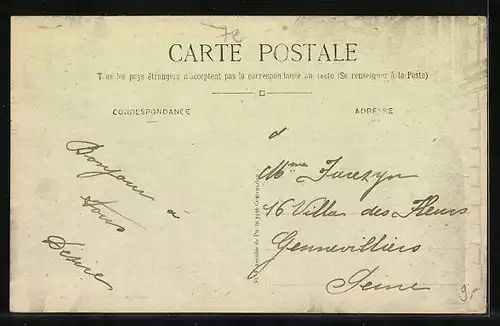 72
CARTE POSTALE
Tous les pays étrangers n'acceptent pas la correspondance au recto (Se renseigner à la Poste)
CORRESPONDANCE
ADRESSE
Bonjour
à
tous
Désiré
à
Mme
16 Villa des Fleurs
Gennevilliers
Seine
9.-